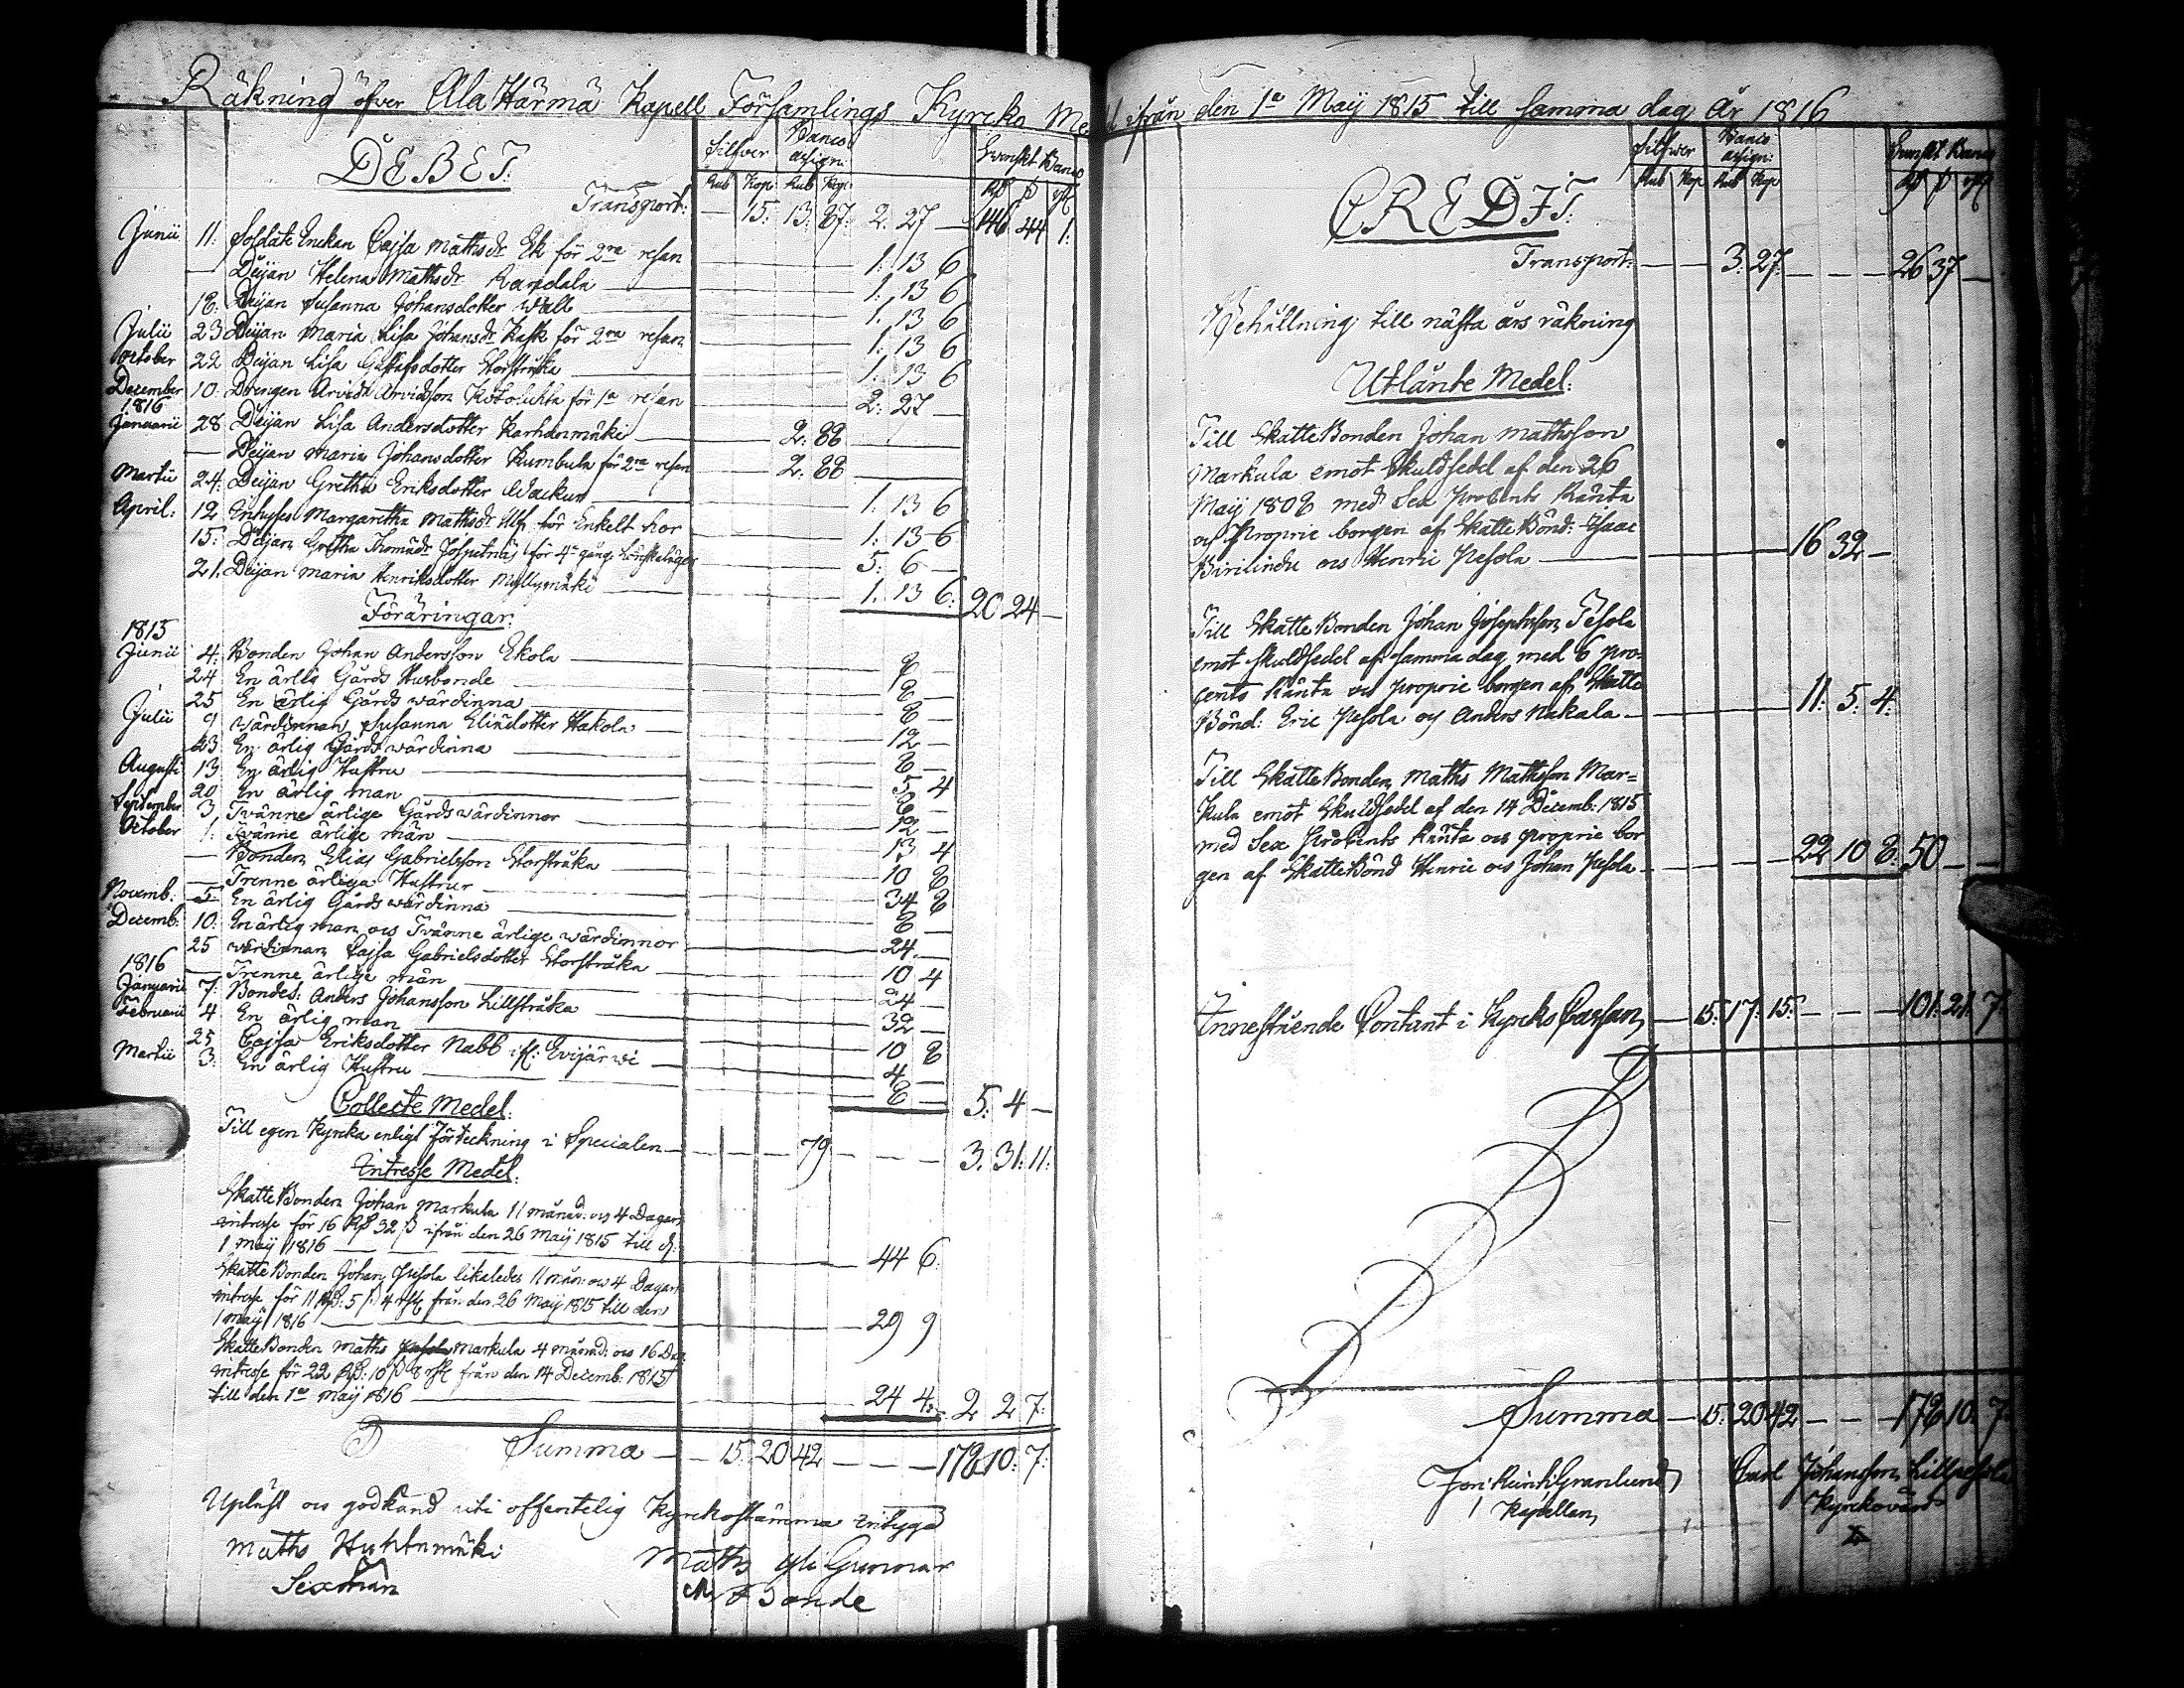 Räkning öfver Ala Härmä Kapell Församlings Kyrcko Me
DEBET.
Silfver Banco assign: Swenskt Banco
Rub Kop: Rub Kop:
Transport: — 15: 13: 87: 2: 27 — 146 44 1:
Junii 11: Soldate Enckan Cajsa Mathsdr Ek för 2ra resan 1: 13 6
— Deijan Helena Mathsdr Randala 1: 13 6
18: Deijan Susanna Johansdotter Wall 1: 13 6
Julii 23 Deijan Maria Lisa Johansdr Kask för 2ra resan 1: 13 6
October 22 Deijan Lisa Gustafsdotter Storstråka 1: 13 6
December 10: Drengen Arvid Arvidsson för 1a resan 2: 27 —
1816
Januarii 28 Deijan Lisa Andersdotter Karhunmäki 2: 88
— Deijan Maria Johansdotter Kumbula för 2ra resan 2: 88
Martii 24: Deijan Gretha Eriksdotter Wackur 1: 13 6
April: 12 Enhyses Margaretha Mathsdr för Enkelt hor 1: 13 6
15: Deijan Gretha Thomädr för 4e gång 5: 6 —
21. Deijan Maria Henriksdotter Myllymäki 1: 13 6: 20 24 —
Föräringar:
1815
Junii 4: Bonden Johan Andersson Ekola 8 —
24 En ärlig Gårds Husbonde 8 —
25 En ärlig Gårds wärdinna 8 —
Julii 9 Wärdinnan Susanna Eliædotter Hakola 12 —
23 En ärlig Gårds wärdinna 8 —
Augusti 13 En ärlig Hustru 5 4
20 En ärlig man 8 —
September 3 Tvänne ärlige Gårds wärdinnor 12 —
October 1: Tvänne ärlige män 13 4
— Bonden Elias Gabrielsson Storstråka 10 8
— Trenne ärliga Hustrur 34 8
Novemb: 5 En ärlig Gårds wärdinna 8 —
Decemb: 10: En ärlig man och Tvänne ärlige wärdinnor 24 —
25 wärdinnan Cajsa Gabrielsdotter Storstråka 10 4
1816 — Trenne ärlige män 24 —
Januarii 7: Bondes: Anders Johansson Lillstråka 32 —
Februarii 4 En ärlig man 10 8
25 Cajsa Eriksdotter Nabb Evijärwi 4 —
Martii 3: En ärlig Hustru 8 — 5: 4 —
Collecte Medel:
Till egen Kyrcka enligt förteckning i Specialen — 79 — 3. 31: 11:
Intresse Medel:
Skatte Bonden Johan Markula 11 månad: och 4 Dagars
intresse för 16 Rd 32 s ifrån den 26 Maij 1815 till d:
1 Maij 1816 44 6:
Skatte Bonden Johan Pesola likaledes 11 mån: och 4 Dagars
intresse för 11 Rd: 5 s 4 rst från den 26 Maij 1815 till den
1 Maij 1816 29 9
Skatte Bonden Maths Markula 4 månad: och 16 Dag:
intresse för 22 Rd: 10 s 8 rst från den 14 Decemb: 1815
till den 1a Maij 1816 24 4: 2 2 7:
Summa — 15: 20 42 — 178 10: 7:
Upläst och godkänd uti offentelig Kyrckostämma intyga
Maths Huhtamäki
Sexman
Maths Yli Gunnar
Bonde
ifrån den 1a Maij 1815 till samma dag År 1816
CREDIT:
Silfwer Banco assign: Swenskt Banco
Rub Kop Rub Kop
Transport: — 3: 27: — 26 37 —
Behållning till nästa års räkning
Utlånte Medel:
Till Skatte Bonden Johan Mathsson
Markula emot Skuldsedel af den 26
Maij 1808 med Sex procents Ränta
och Proprie borgen af Skatte Bönd: Isaac
och Henric Pesola — 16 32 —
Till Skatte Bonden Johan Josephsson Pesola
emot Skuldsedel af samma dag med 6 pro-
cents Ränta och proprie borgen af Skatte
Bönd: Eric Pesola och Anders Nakala — 11: 5: 4:
Till Skatte Bonden Maths Mathsson Mar=
kula emot Skuldsedel af den 14 Decemb: 1815
med Sex procents Ränta och proprie bor
gen af Skatte Bönd Henric och Johan Pesola — 22 10 8: 50 —
Innestående Contant i Kyrcko Cassan — 15: 17: 15: — 101: 21: 7:
Summa — 15: 20 42 — 178 10: 7:
Granlund
Kapellan
Carl Johansson Lillpesola
Kyrckovärd